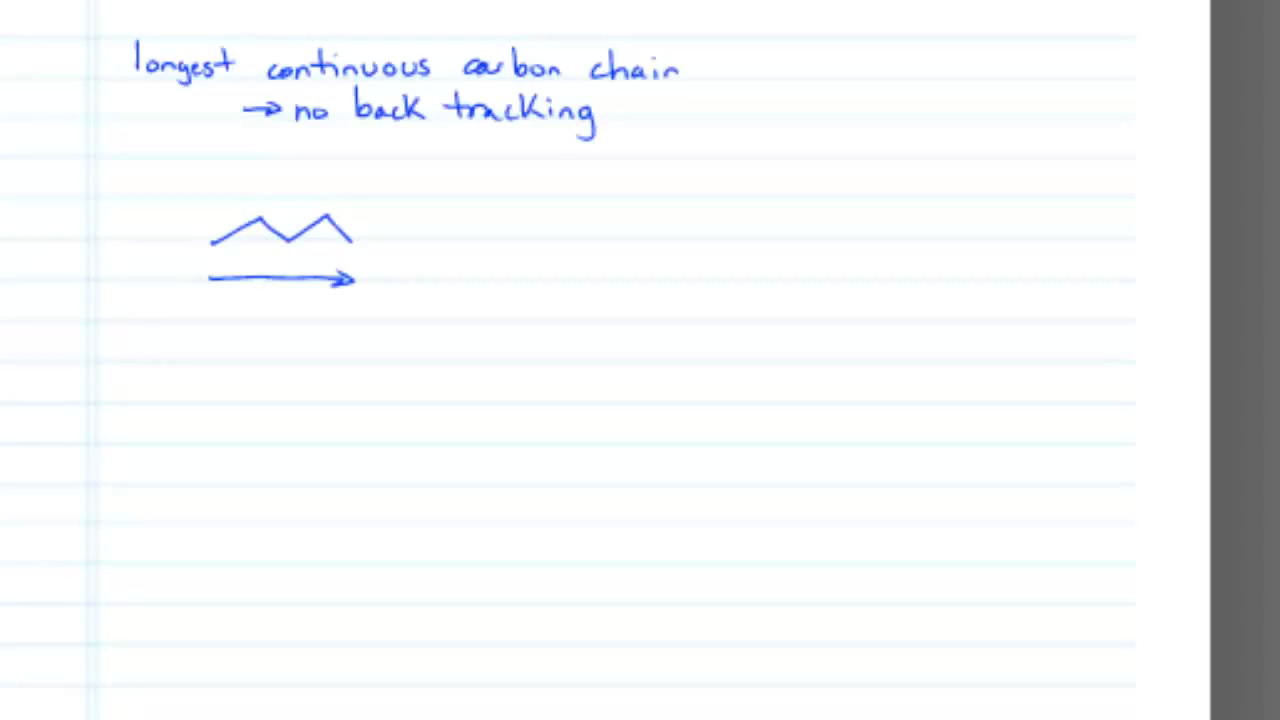 longest continuous carbon chain
→ no back tracking